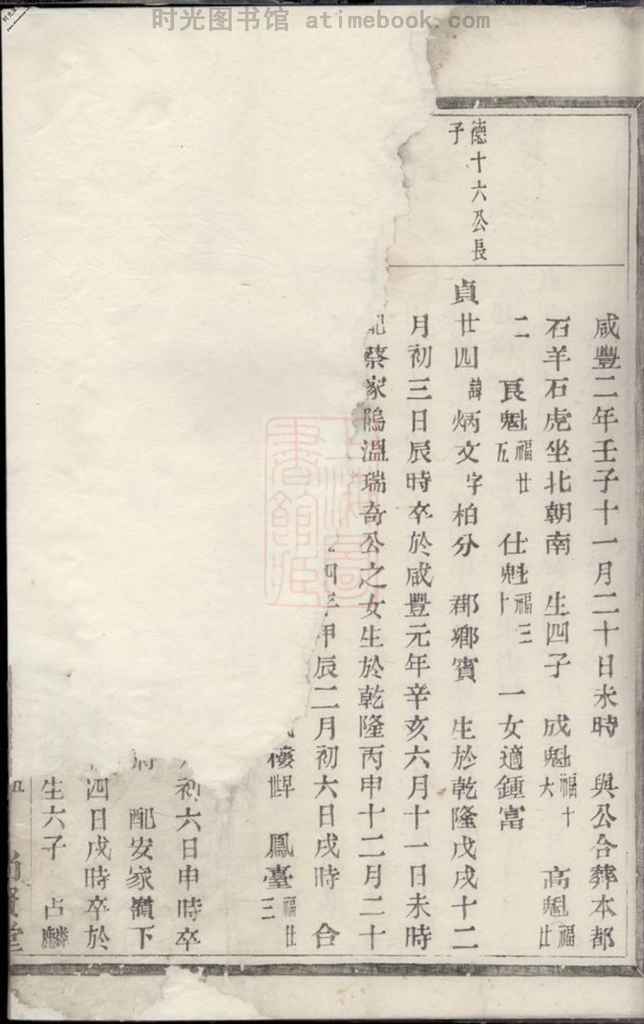 时光图书馆 atimebook.com
德十六公長
子
咸豐二年壬子十一月二十日未時 與公合葬本都
石羊石虎坐北朝南 生四子 成魁福十六 高魁福廿
二 良魁福廿五 仕魁福三十 一女適鍾富
貞廿四諱炳文字柏分 郡鄉賓 生於乾隆戊戌十二
月初三日辰時卒於咸豐元年辛亥六月十一日未時
配蔡家隖溫瑞奇公之女生於乾隆丙申十二月二十
四年甲辰二月初六日戌時 合
鳳臺福廿三
初六日申時卒
配安家嶺下
四日戌時卒於
生六子 占麟
五